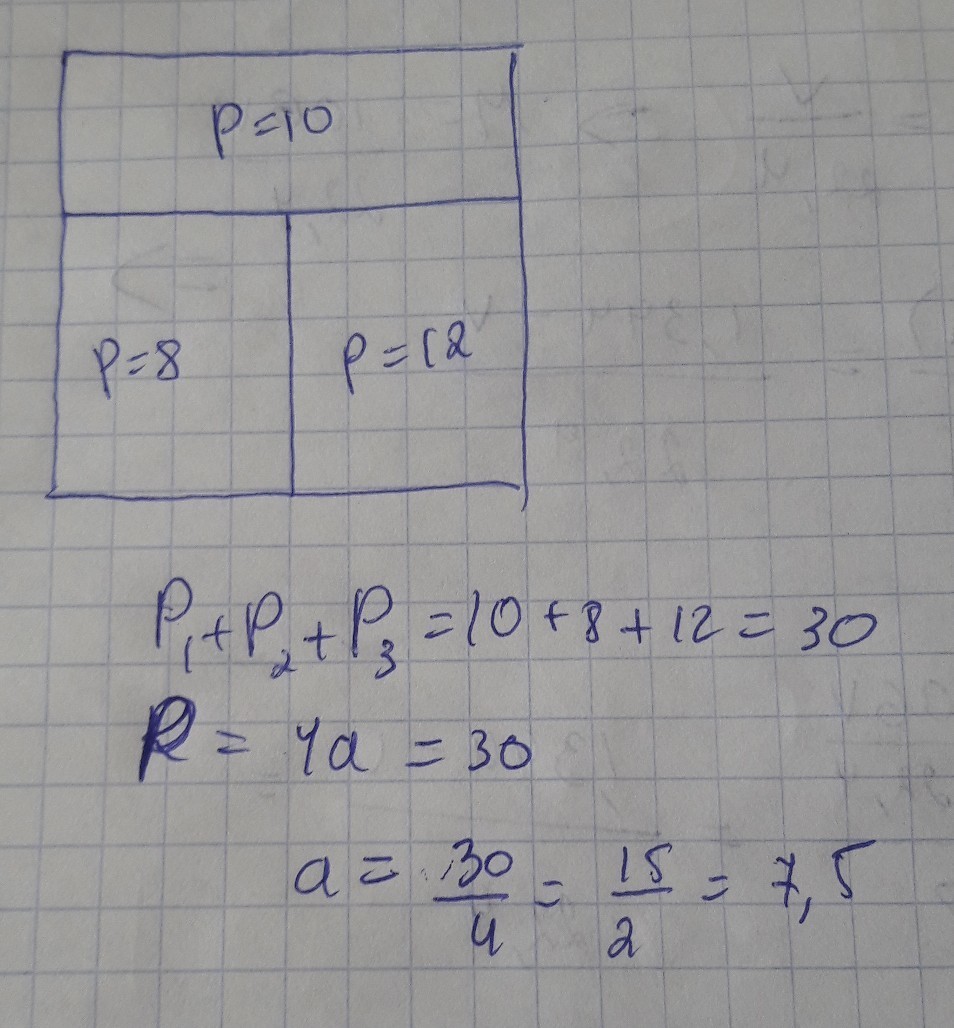 P=10
P=8 P=12
P₁+P₂+P₃=10+8+12=30
P = 4a = 30
a = 30/4 = 15/2 = 7,5